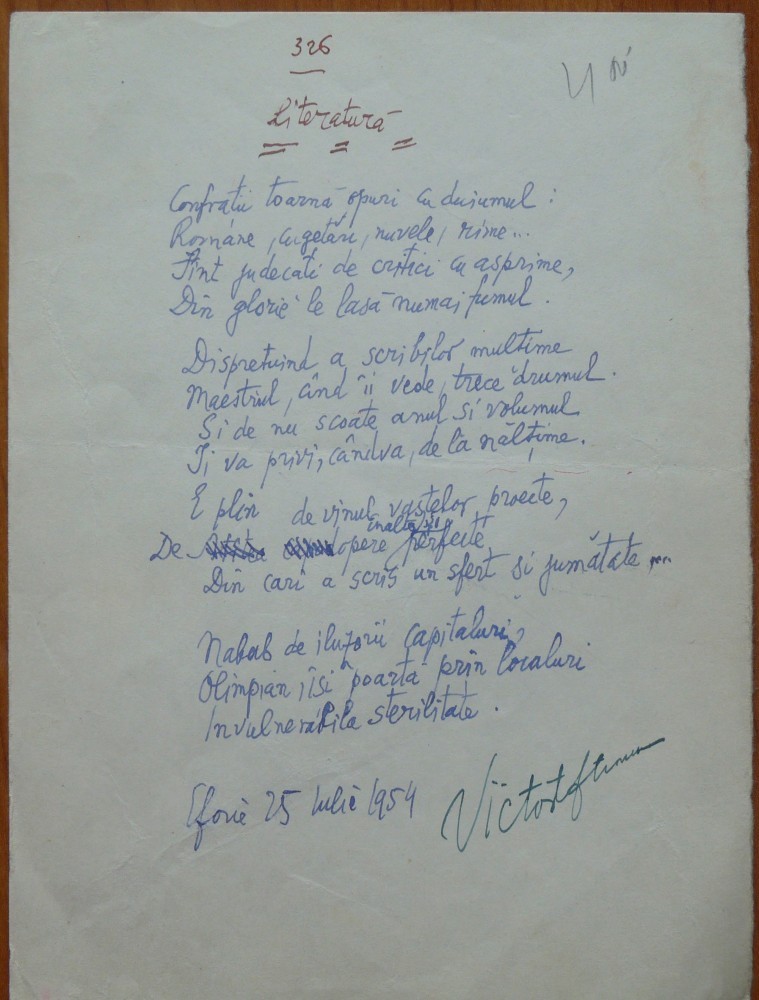 326
Literatură
Confrații toarnă opuri cu duiumul :
Romane, cugetări, nuvele, rime...
Sînt judecați de critici cu asprime,
Din glorie le lasă numai fumul.
Disprețuind a scribilor mulțime
Maestrul, când îi vede, trece drumul.
Și de nu scoate anul și volumul
Îi va privi, cândva, de la nălțime.
E plin de vinul vastelor proecte,
De opere înalte și perfecte
Din cari a scris un sfert și jumătate...
Nabab de iluzorii capitaluri,
Olimpian, își poartă prin localuri
Invulnerabila sterilitate.
Eforie 25 Iulie 1954
Victor Eftimiu